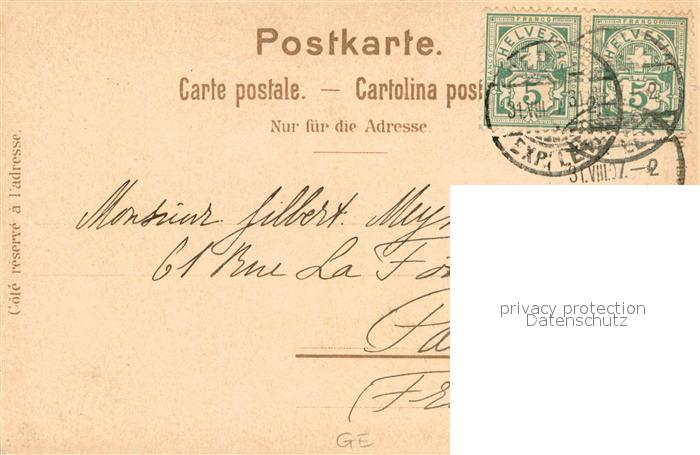 Postkarte.
Carte postale. — Cartolina post
Nur für die Adresse.
Côté réservé à l'adresse.
FRANCO FRANCO
HELVETIA HELVETIA
5 5
EXP. LE
31.VIII.07.—2
Monsieur Gilbert Mey
61 Rue La Fo
Pa
(Fr
GE
privacy protection
Datenschutz